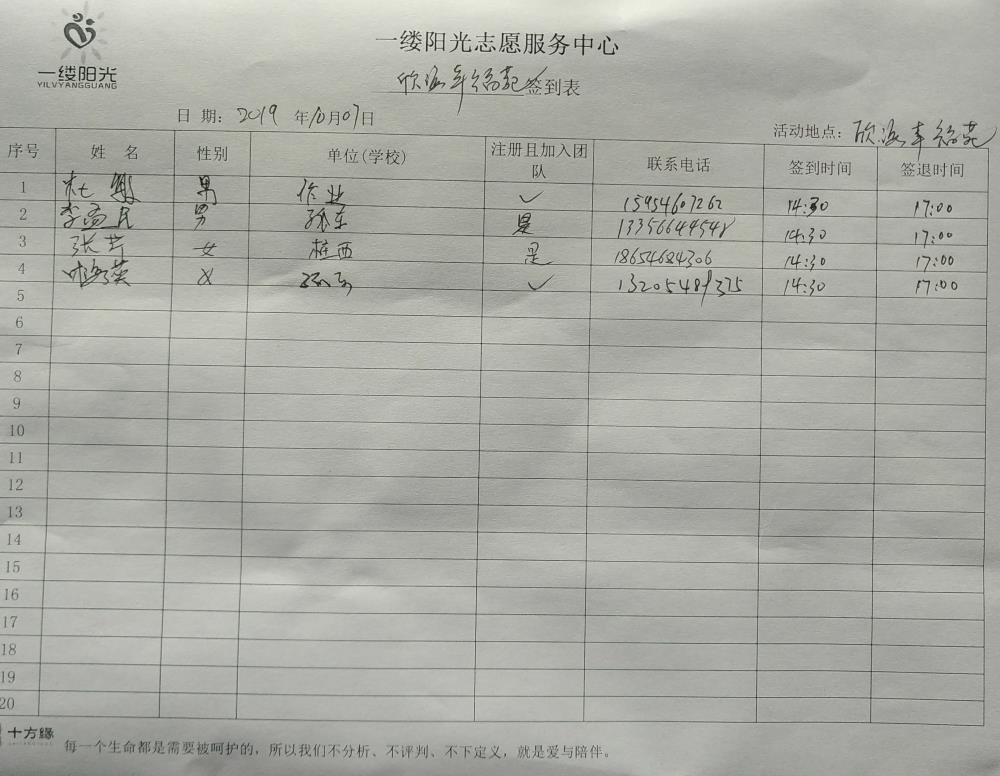 一缕阳光
YILVYANGGUANG
一缕阳光志愿服务中心
签到表
日 期: 2019 年10月07日
活动地点:
序号 姓 名 性别 单位(学校) 注册且加入团队 联系电话 签到时间 签退时间
1 男 作业 ✓ 15954607262 14:30 17:00
2 李 民 男 是 13356644548 14:30 17:00
3 张芸 女 桩西 是 18654684306 14:30 17:00
4 英 女 ✓ 13205489375 14:30 17:00
5
6
7
8
9
10
11
12
13
14
15
16
17
18
19
20
十方緣
每一个生命都是需要被呵护的，所以我们不分析、不评判、不下定义，就是爱与陪伴。